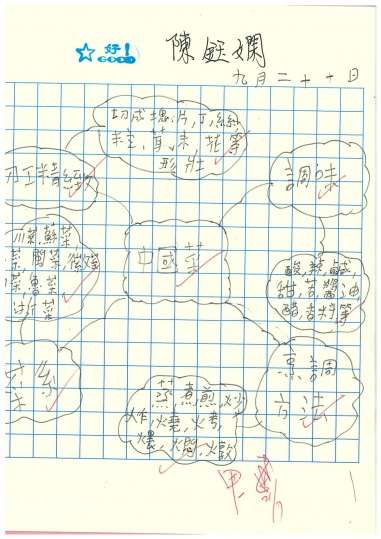 好!
GOOD
陳鈺嫻
九月二十十日
切成塊,片,丁,絲
粒,茸,末,花等
形狀
刀工精細
調味
川菜,蘇菜
菜,閩菜,徽菜
菜,魯菜,
浙菜
中國菜
酸,辣,鹹,
甜,苦,醬油,
醋,香料等
菜系
烹調
方法
蒸,煮,煎,炒
炸,燒,烤,
燜,燉
甲